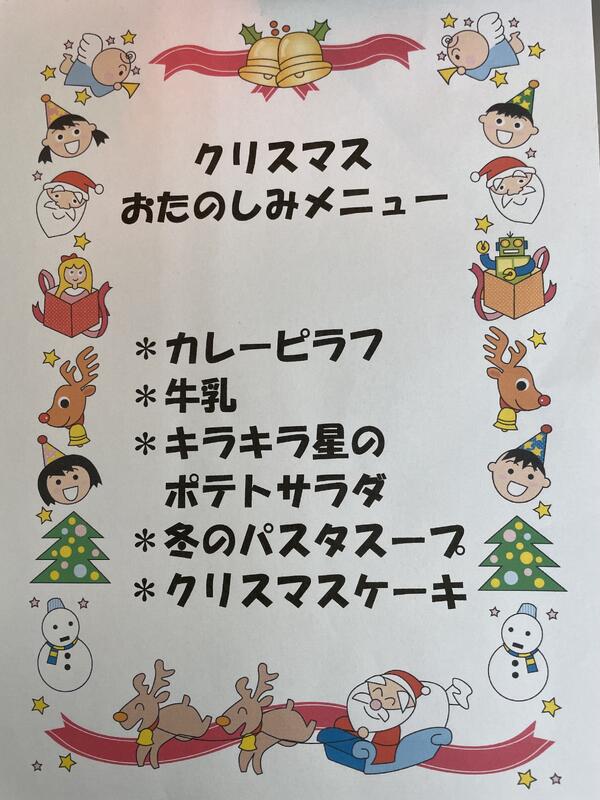 クリスマス
おたのしみメニュー
＊カレーピラフ
＊牛乳
＊キラキラ星の
ポテトサラダ
＊冬のパスタスープ
＊クリスマスケーキ